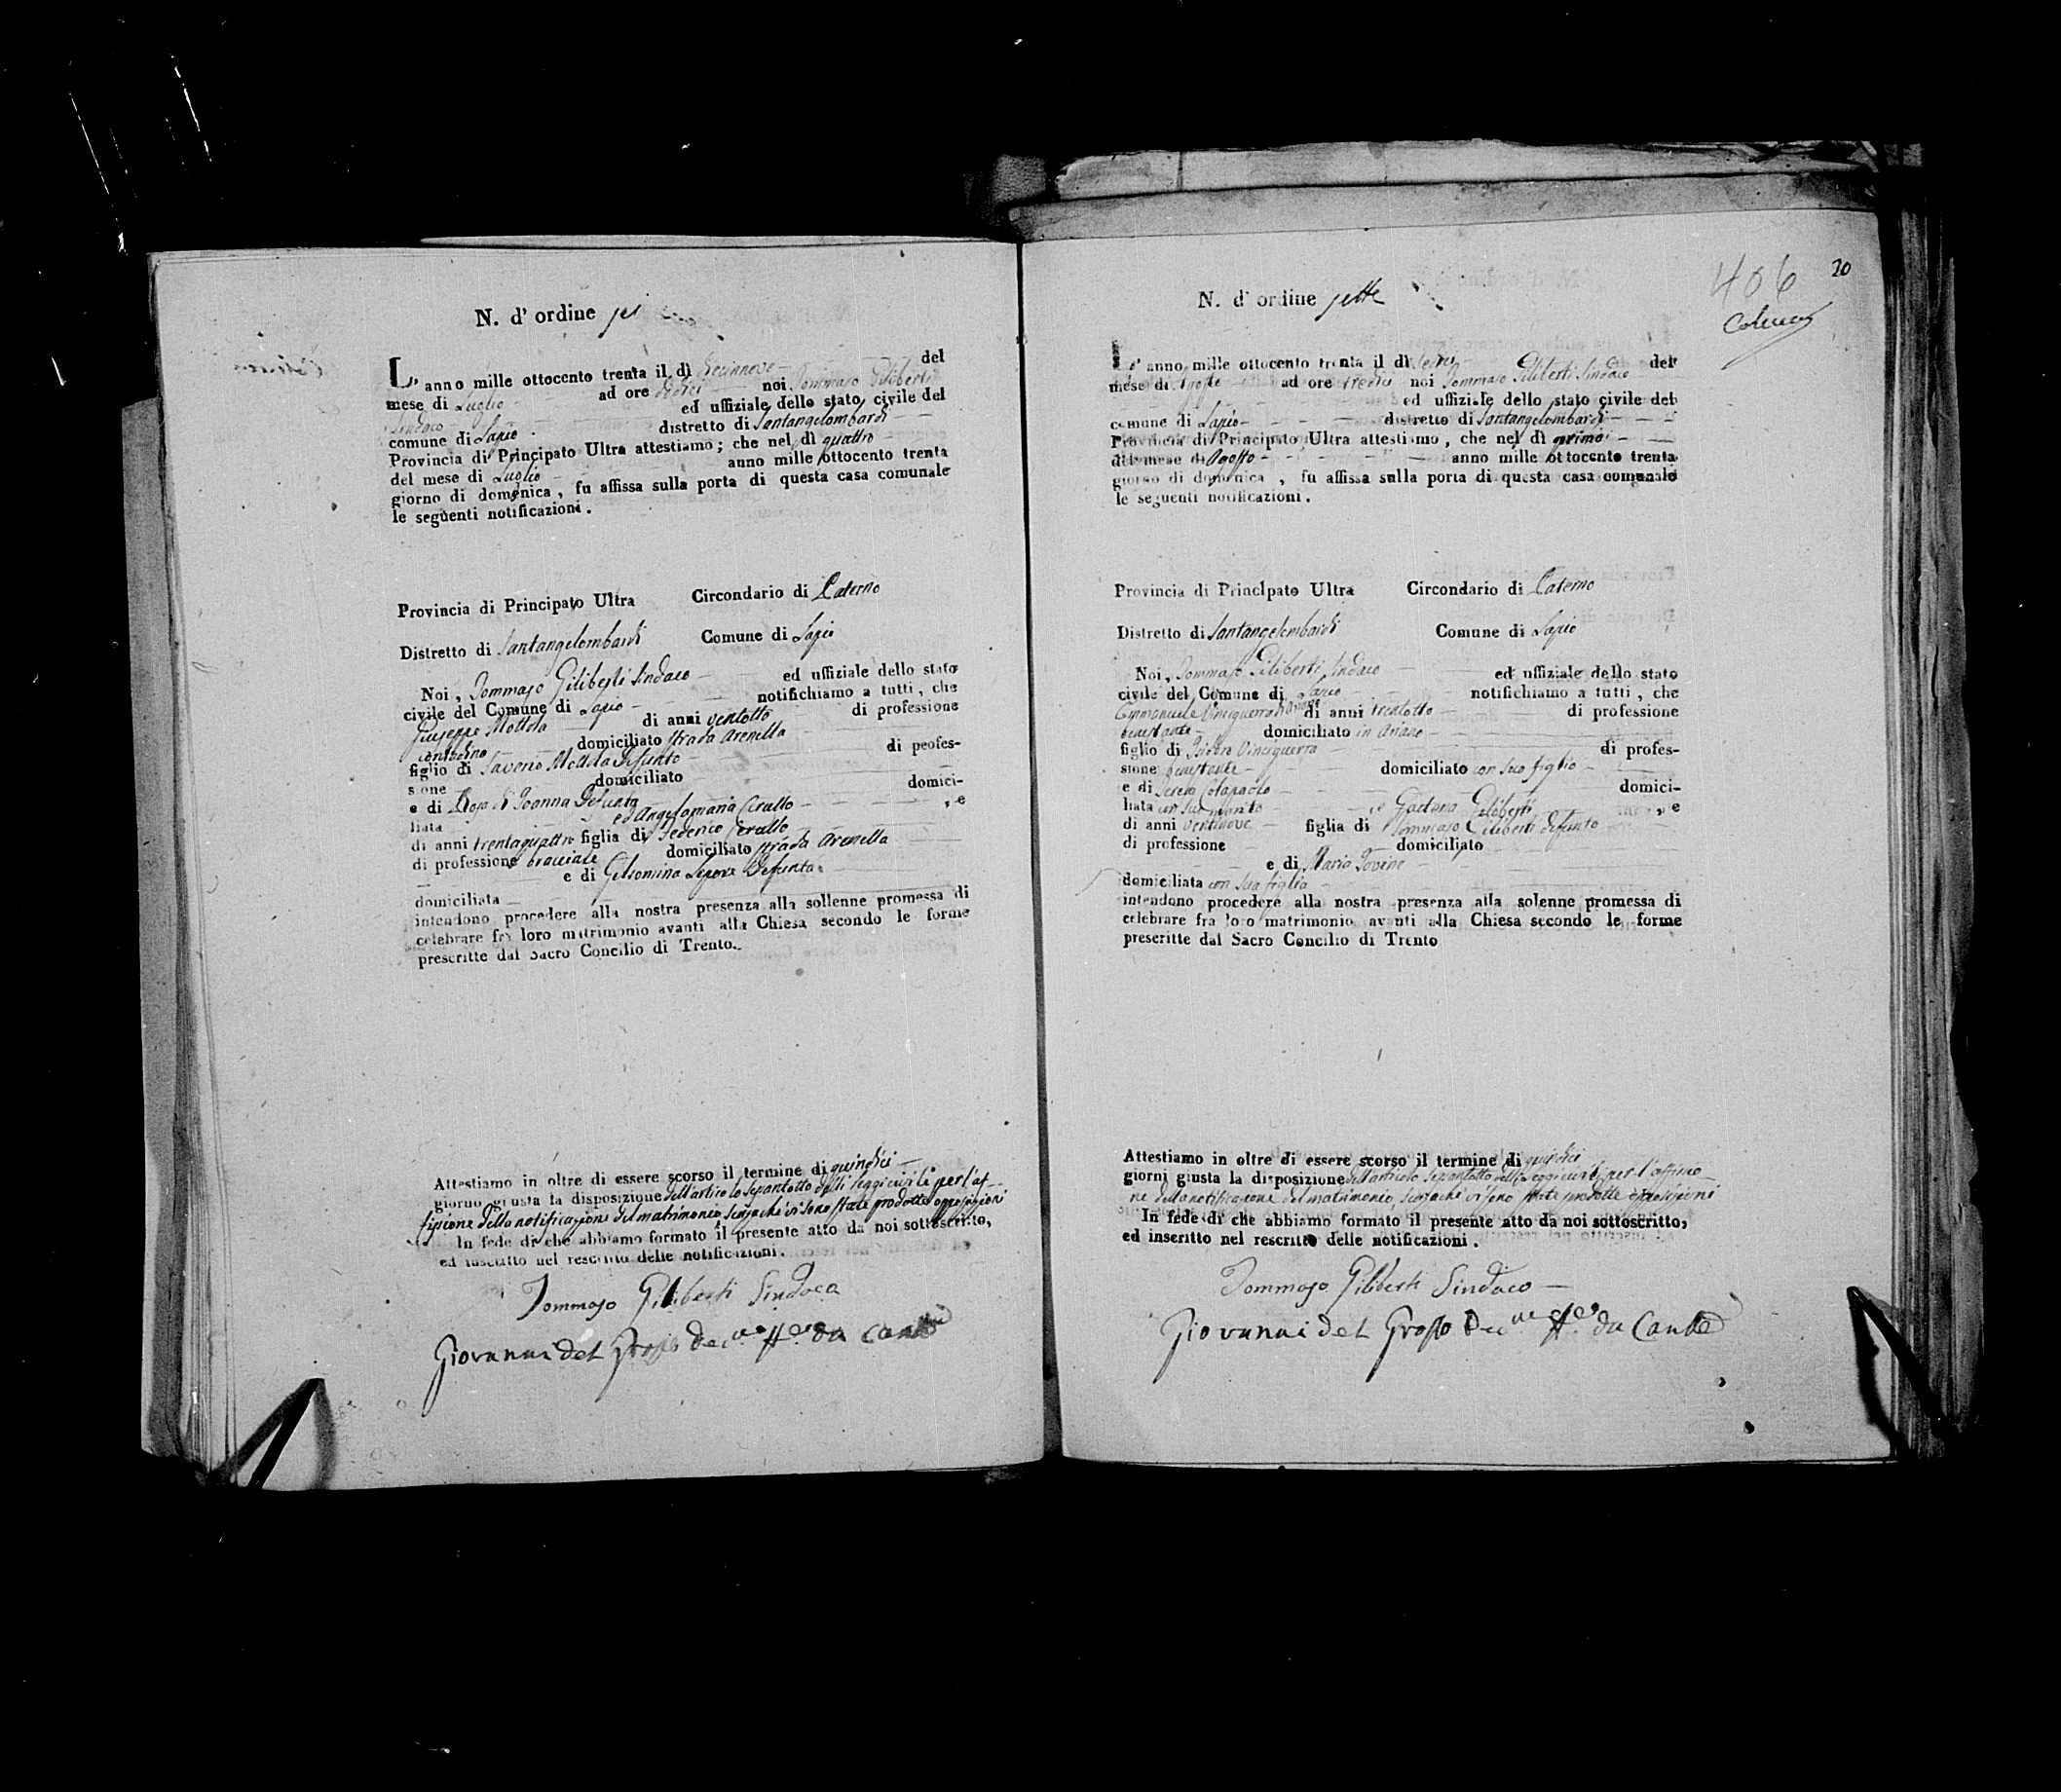 N. d' ordine sei
L' anno mille ottocento trenta il dì diecinnove del
mese di Luglio ad ore dodici noi Tommaso Giliberti
Sindaco ed uffiziale dello stato civile del
comune di Lapio distretto di Santangelombardi
Provincia di Principato Ultra attestiamo; che nel dì quattro
del mese di Luglio anno mille ottocento trenta
giorno di domenica, fu affissa sulla porta di questa casa comunale
le seguenti notificazioni.
Provincia di Principato Ultra Circondario di Paterno
Distretto di Santangelombardi Comune di Lapio
Noi, Tommaso Giliberti Sindaco ed uffiziale dello stato
civile del Comune di Lapio notifichiamo a tutti, che
Giuseppe Mottola di anni ventotto di professione
contadino domiciliato strada Arenella
figlio di Saverio Mottola defunto di peofes-
sione domiciliato
e di Rosa di Joanna defunta domici-
liata ed Angelomaria Cerullo , e
di anni trentaquattro figlia di Federico Cerullo
di professione bracciale domiciliato strada Arenella
e di Gelsomina Lepore defunta
domiciliata
intendono procedere alla nostra presenza alla sollenne promessa di
celebrare fra loro matrimonio avanti alla Chiesa secondo le forme
prescritte dal Sacro Concilio di Trento.
Attestiamo in oltre di essere scorso il termine di quindici
giorno giusta la disposizione dell'articolo sepantotto delli leggi civili per l'af-
fissione della notificazione del matrimonio senzacché vi sono state prodotte opposizioni
In fede di che abbiamo formato il presente atto da noi sottoscritto,
ed inscritto nel rescritto delle notificazioni.
Tommaso Giliberti Sindaco
Giovanni del Grosso

N. d' ordine sette
406
20
L' anno mille ottocento trenta il dì del
mese di Agosto ad ore tredici noi Tommaso Giliberti Sindaco
ed uffiziale dello stato civile del
comune di Lapio distretto di Santangelombardi
Provincia di Principato Ultra attestiamo, che nel dì primo
del mese di Agosto anno mille ottocento trenta
giorno di domenica, fu affissa sulla porta di questa casa comunale
le seguenti notificazioni.
Provincia di Principato Ultra Circondario di Paterno
Distretto di Santangelombardi Comune di Lapio
Noi, Tommaso Giliberti Sindaco ed uffiziale dello stato
civile del Comune di Lapio notifichiamo a tutti, che
Emmanuele Vinciguerra di anni trentotto di professione
benestante domiciliato in Ariano
figlio di Vinciguerra di profes-
sione benestante domiciliato con suo figlio
e di Colapaolo domici-
liata con suo marito , e Gaetana Giliberti , e
di anni ventinove figlia di Tommaso Giliberti defunto
di professione domiciliato
e di Maria Jovine
domiciliata con sua figlia
intendono procedere alla nostra presenza alla solenne promessa di
celebrare fra loro matrimonio avanti alla Chiesa secondo le forme
prescritte dal Sacro Concilio di Trento
Attestiamo in oltre di essere scorso il termine di quindici
giorni giusta la disposizione dell'articolo sepantotto delle leggi civili per l'affissio-
ne della notificazione del matrimonio, senzacché vi sono state prodotte opposizioni
In fede di che abbiamo formato il presente atto da noi sottoscritto,
ed inscritto nel rescritto delle notificazioni.
Tommaso Giliberti Sindaco
Giovanni del Grosso